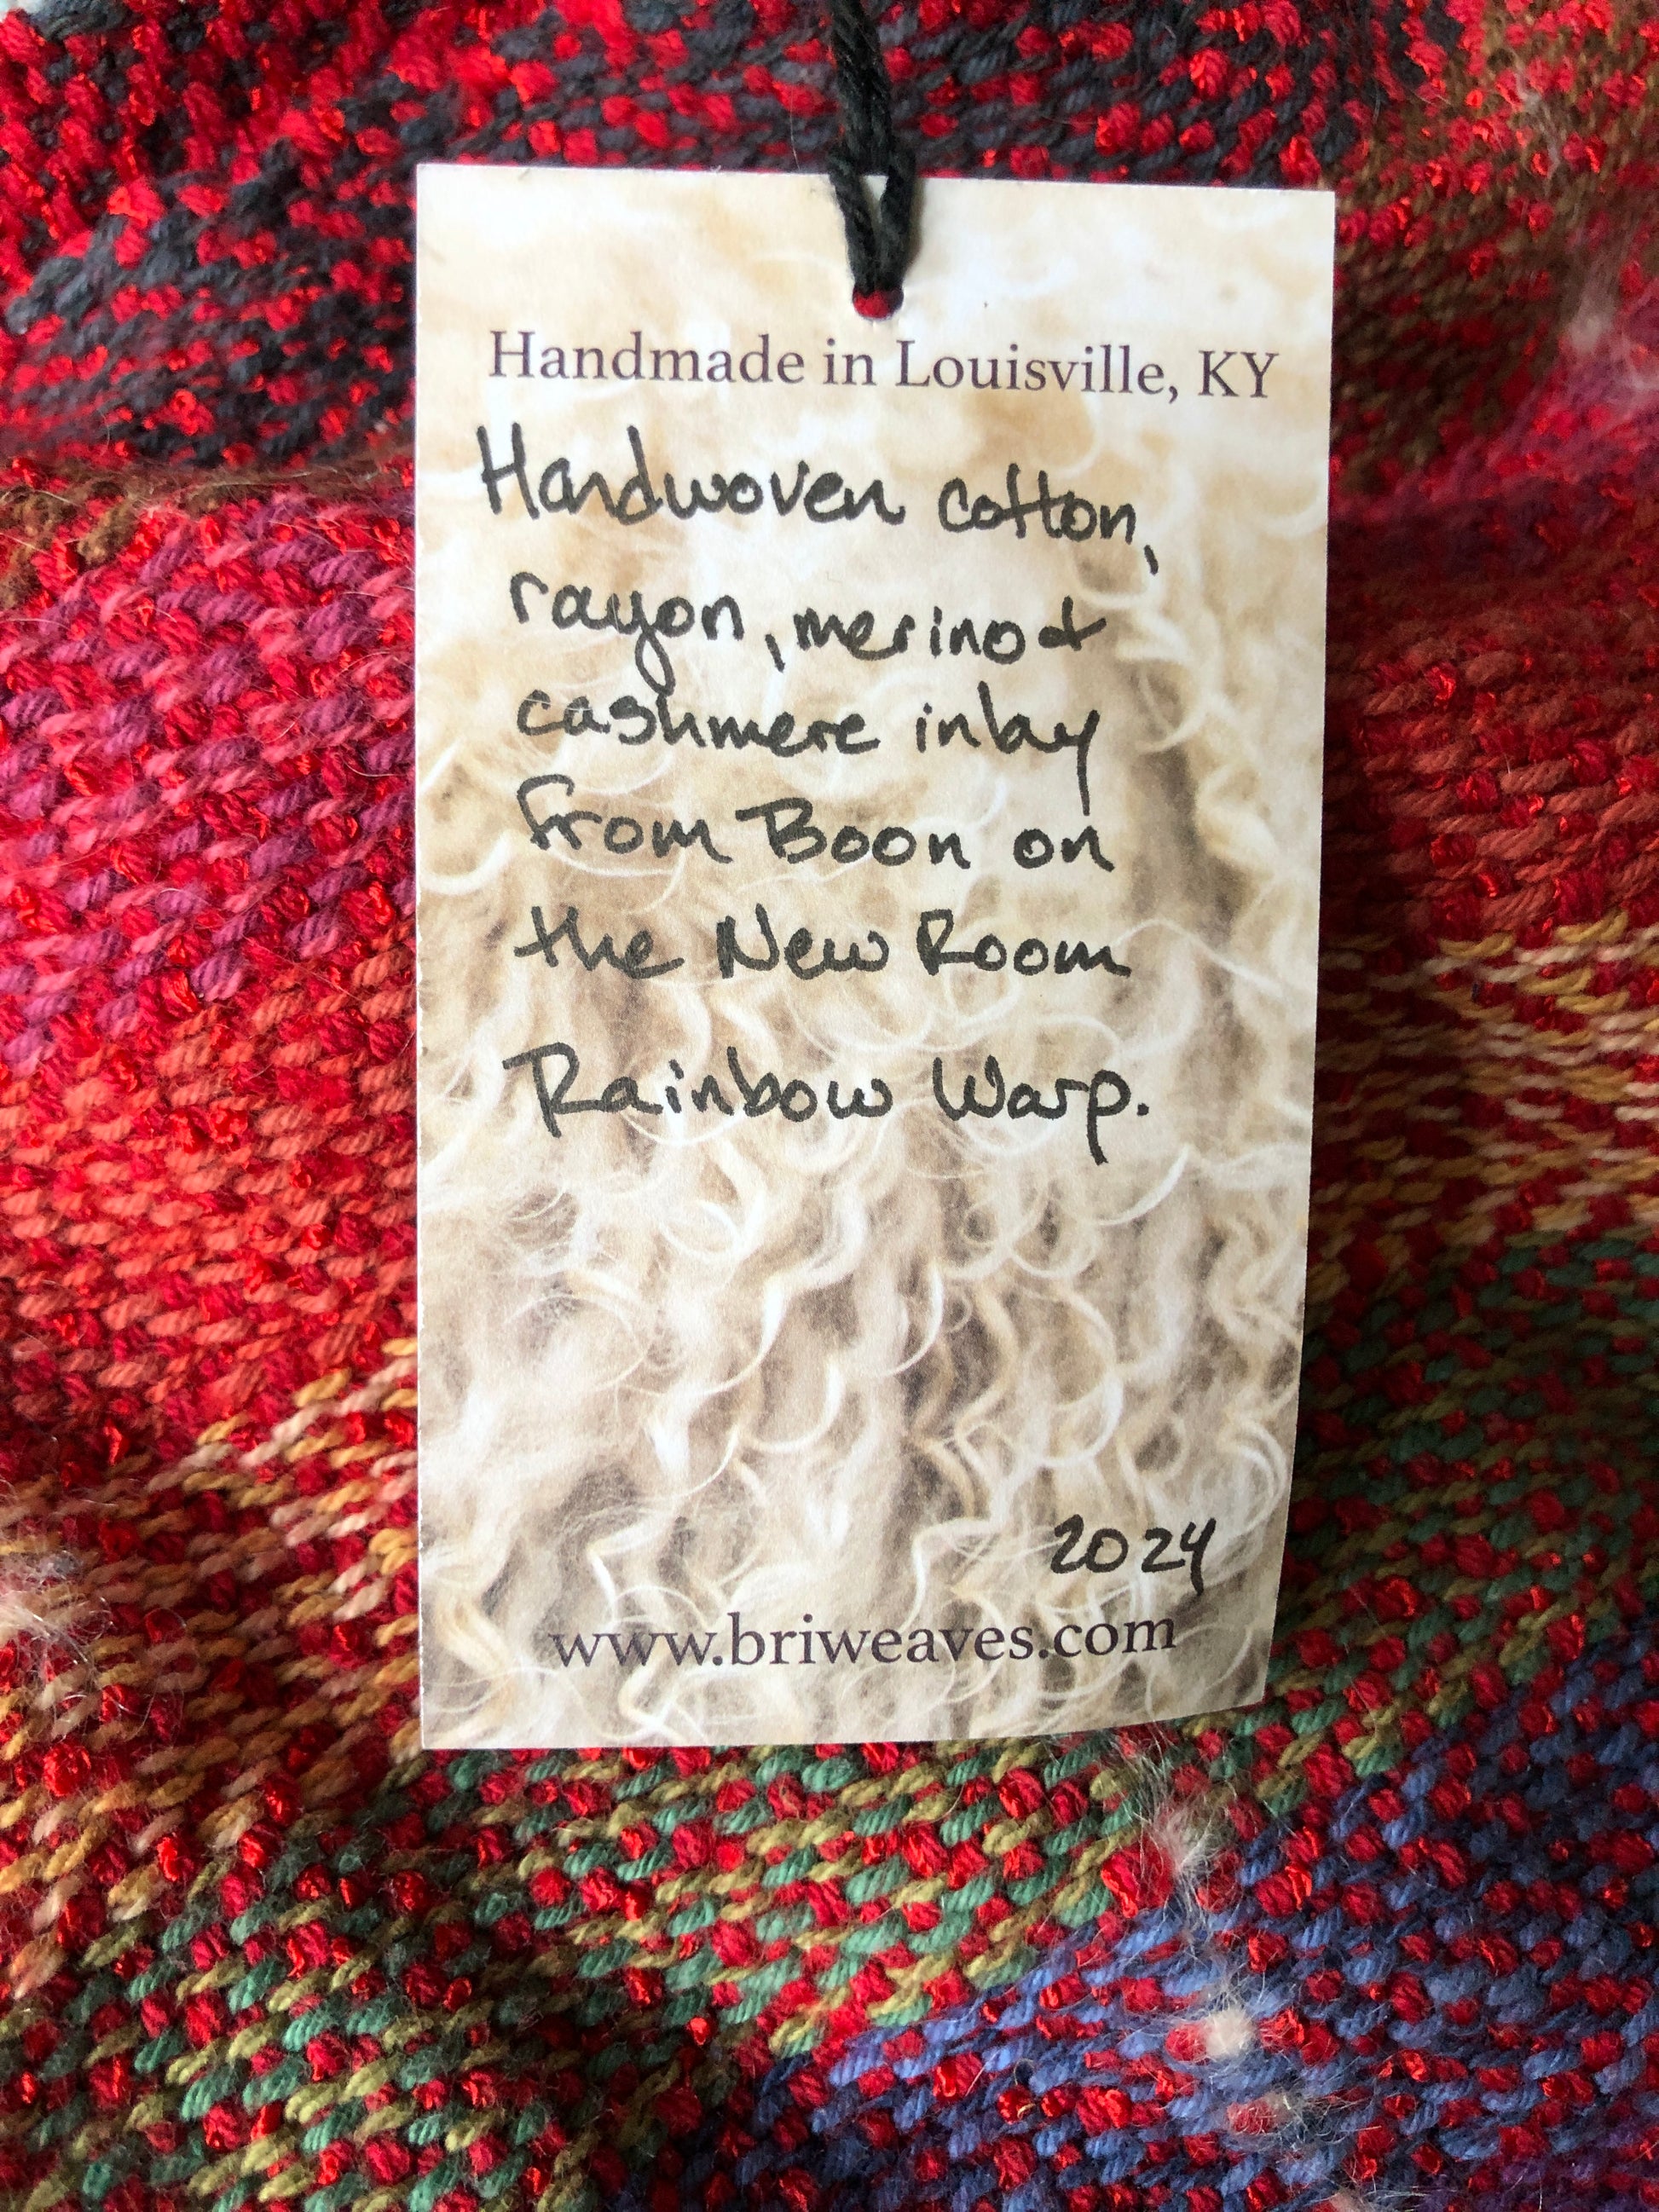 Handmade in Louisville, KY
Handwoven cotton,
rayon, merino &
cashmere inlay
from Boon on
the New Room
Rainbow Warp.
2024
www.briweaves.com